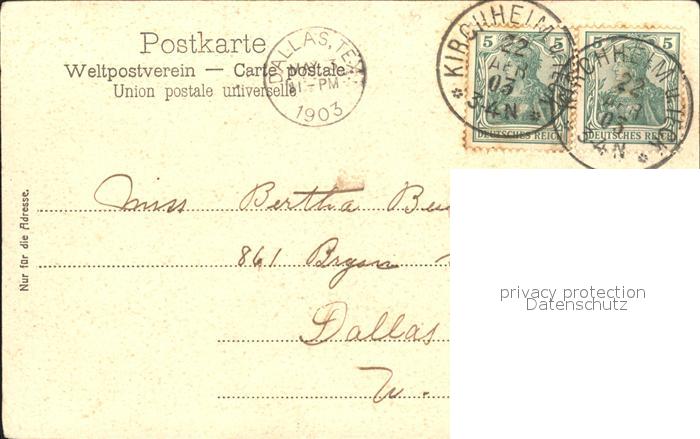 Postkarte
Weltpostverein — Carte postale
Union postale universelle
DALLAS, TEX.
MAY 3
11-PM
1903
KIRCHHEIM
22
APR
03
3-4 N
5 5
DEUTSCHES REICH
KIRCHHEIM
22
APR
03
3-4 N
5 5
DEUTSCHES REICH
Nur für die Adresse.
Miss Bertha
861 Bryan
Dallas
W.
privacy protection
Datenschutz